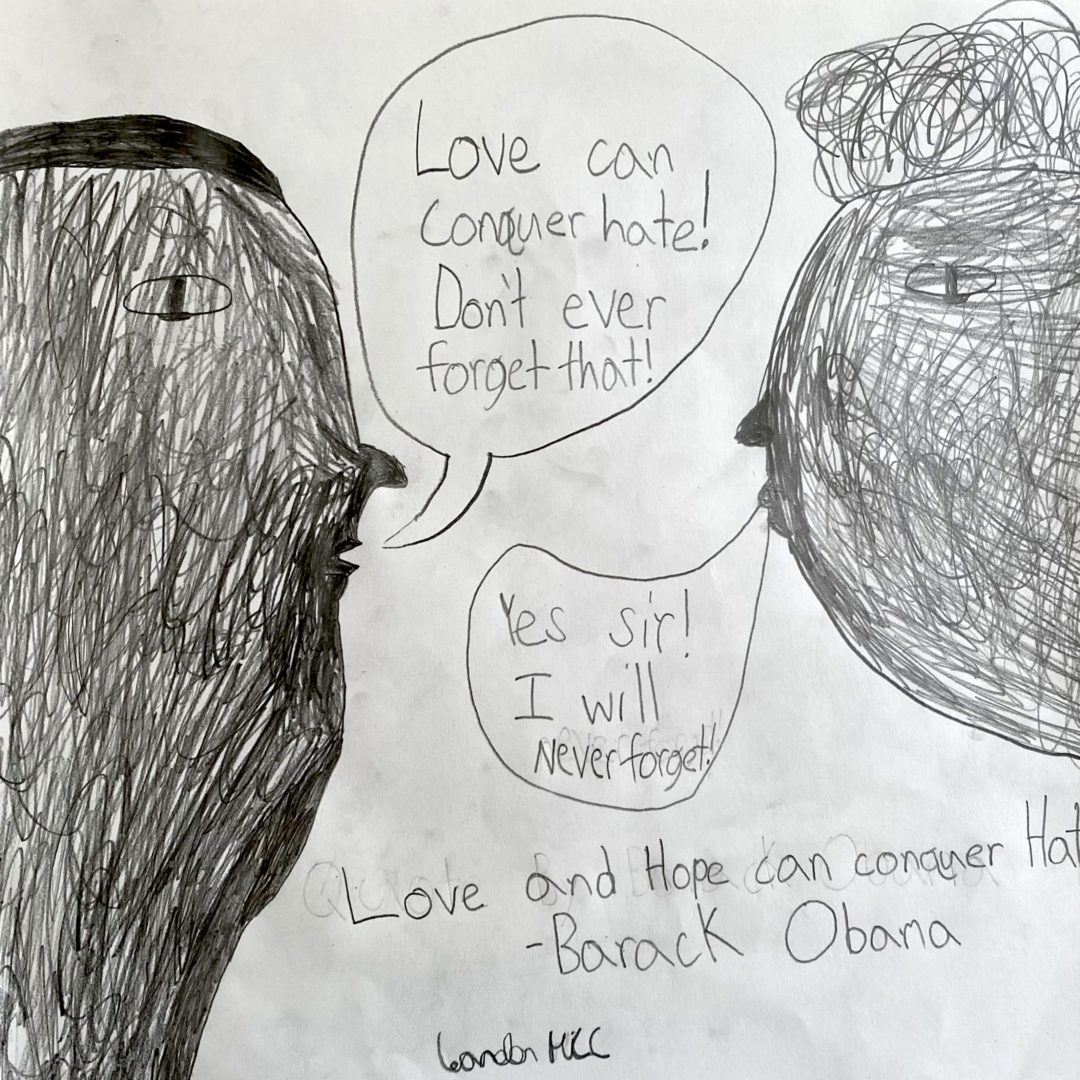 Love can
conquer hate!
Don't ever
forget that!
Yes sir!
I will
Never forget!
Love and Hope can conquer Hat
-Barack Obama